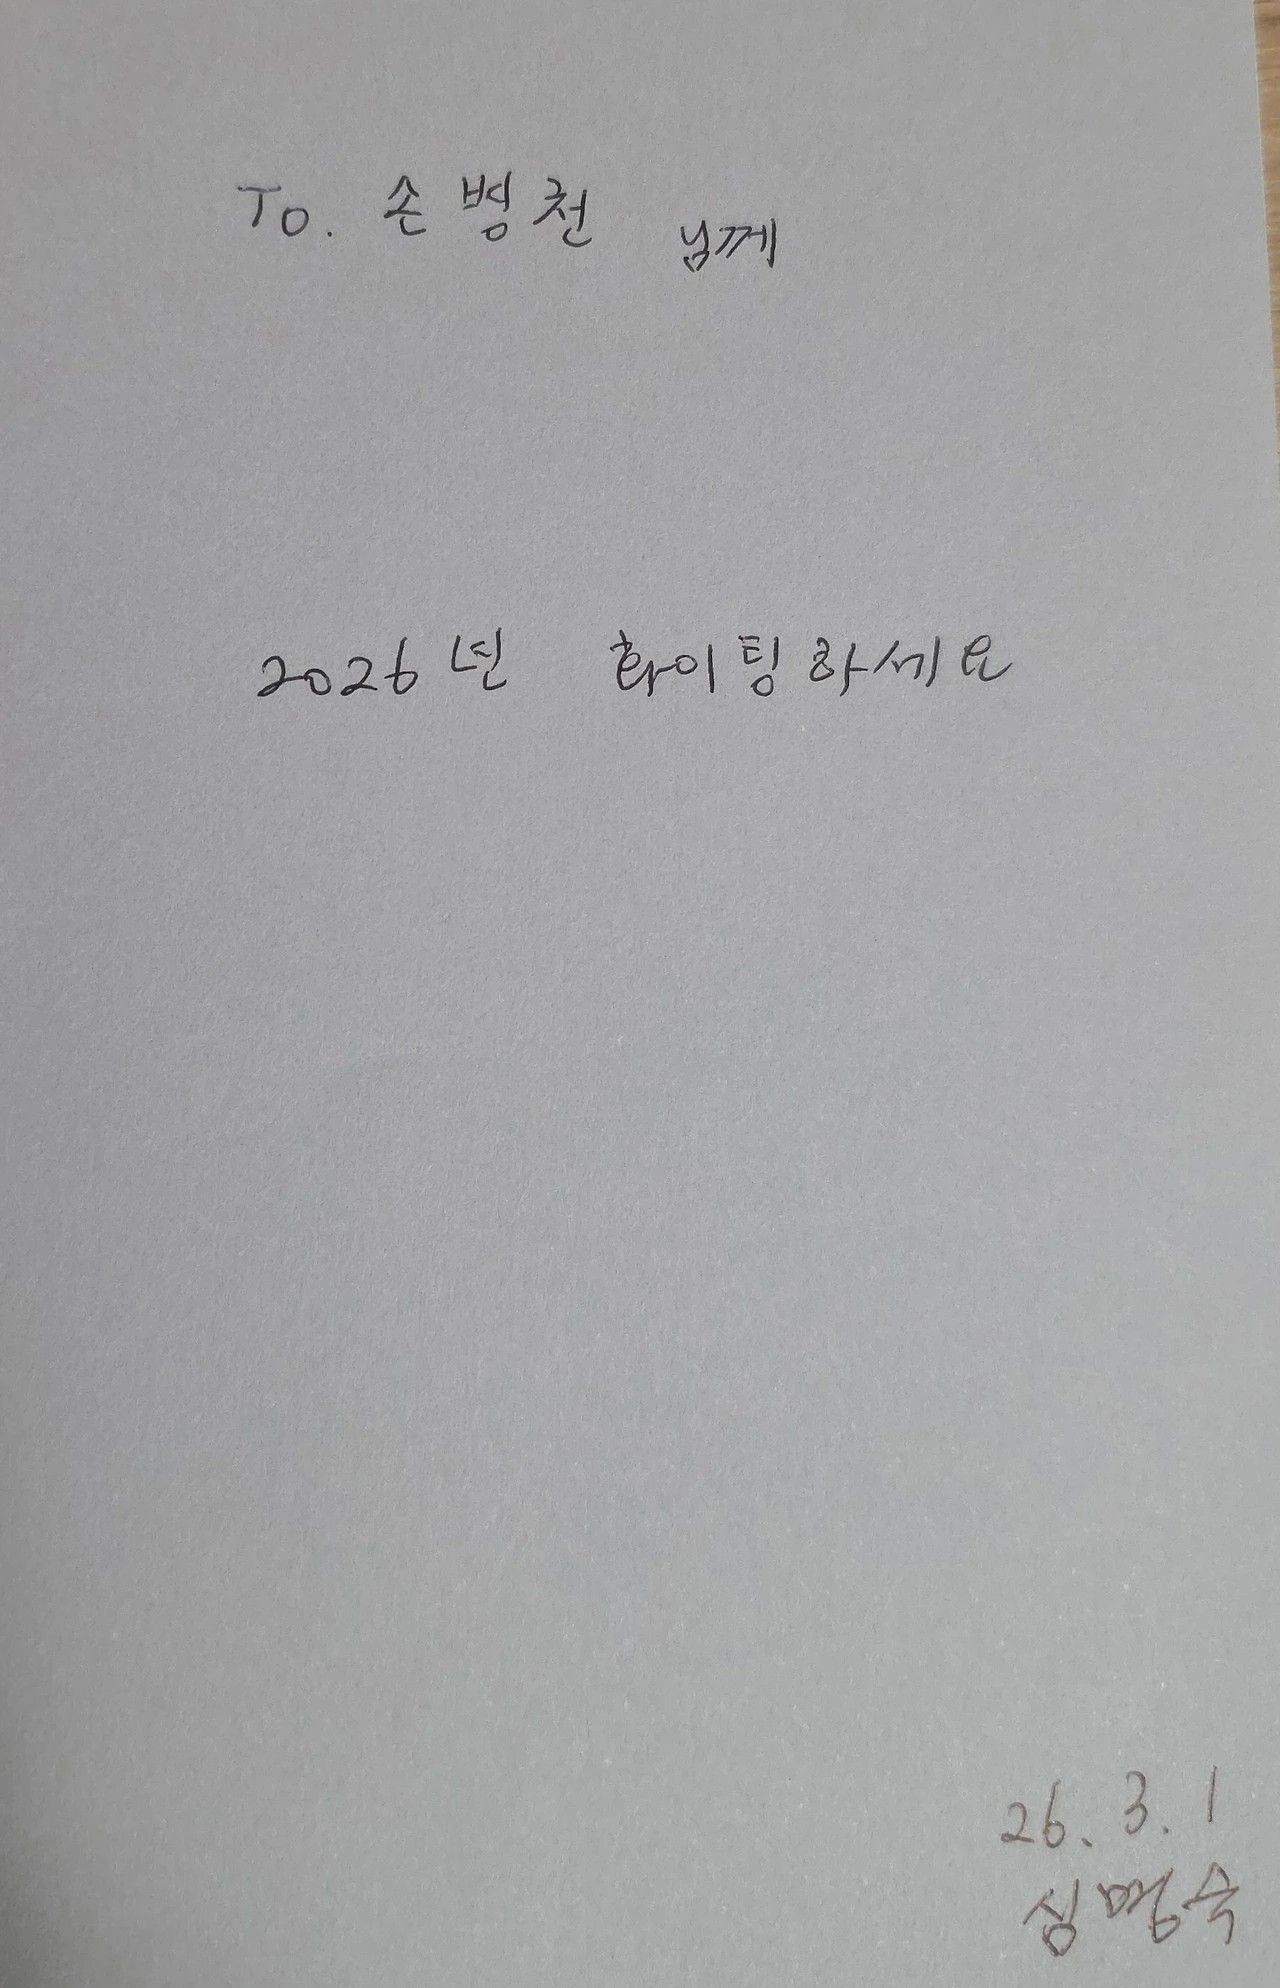 To. 손병천 님께
2026년 화이팅하세요
26. 3. 1
심명숙